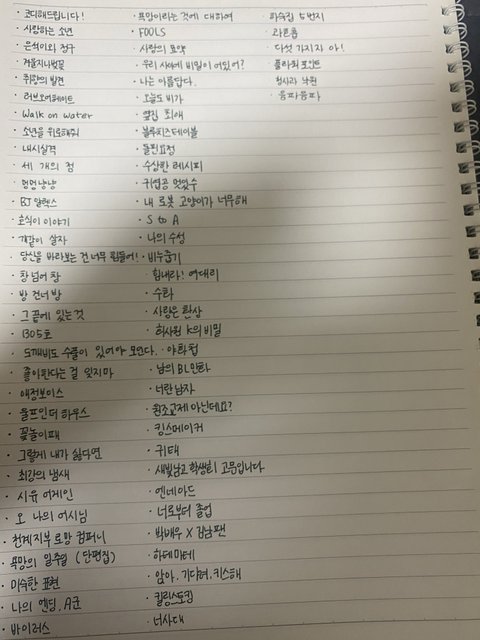 · 코디해드립니다!
· 사랑하는 소년
· 은석이의 청구
· 겨울지나벚꽃
· 취향의 발견
· 러브오어헤이트
· Walk on water
· 소년을 위로해줘
· 내시실격
· 세 개의 점
· 멍멍냥냥
· BJ 알렉스
· 호식이 이야기
· 개같이 살자
· 당신을 바라보는 건 너무 힘들어!
· 창 넘어 창
· 방 건너 방
· 그 끝에 있는 것
· 1305호
· 도깨비도 수풀이 있어야 모인다.
· 좋아한다는 걸 잊지마
· 애정보이스
· 울프 인 더 하우스
· 꽃놀이패
· 그렇게 내가 싫다면
· 최강의 냄새
· 시유 어게인
· 오, 나의 어시님
· 천계지부 로망 컴퍼니
· 욕망의 일주일 (단편집)
· 미숙한 표현
· 나의 엔딩, A군
· 바이러스
· 욕망이라는 것에 대하여
· FOOLS
· 사랑의 묘약
· 우리 사이에 비밀이 어딨어?
· 나는 아름답다.
· 오늘도 비가
· 옆집 최애
· 블루치즈테이블
· 돌핀요정
· 수상한 레시피
· 귀염공 멋있수
· 내 로봇 고양이가 너무해
· S to A
· 나의 수성
· 비누줍기
· 힘내라! 여대리
· 수화
· 사랑은 환상
· 회사원 K의 비밀
· 야화첩
· 남의 BL만화
· 너란남자
· 원조교제 아닌데요?
· 킹스메이커
· 귀태
· 새빛남고 학생회 고음입니다
· 엔네아드
· 너로부터 졸업
· 박배우 X 김남팬
· 하테마테
· 앉아, 기다려, 키스해
· 킬링스토킹
· 너사대
· 파수집 5번지
· 라흐쫍
· 다섯 가지지 아!
· 플라워 포인트
· 청사과 낙원
· 음파음파